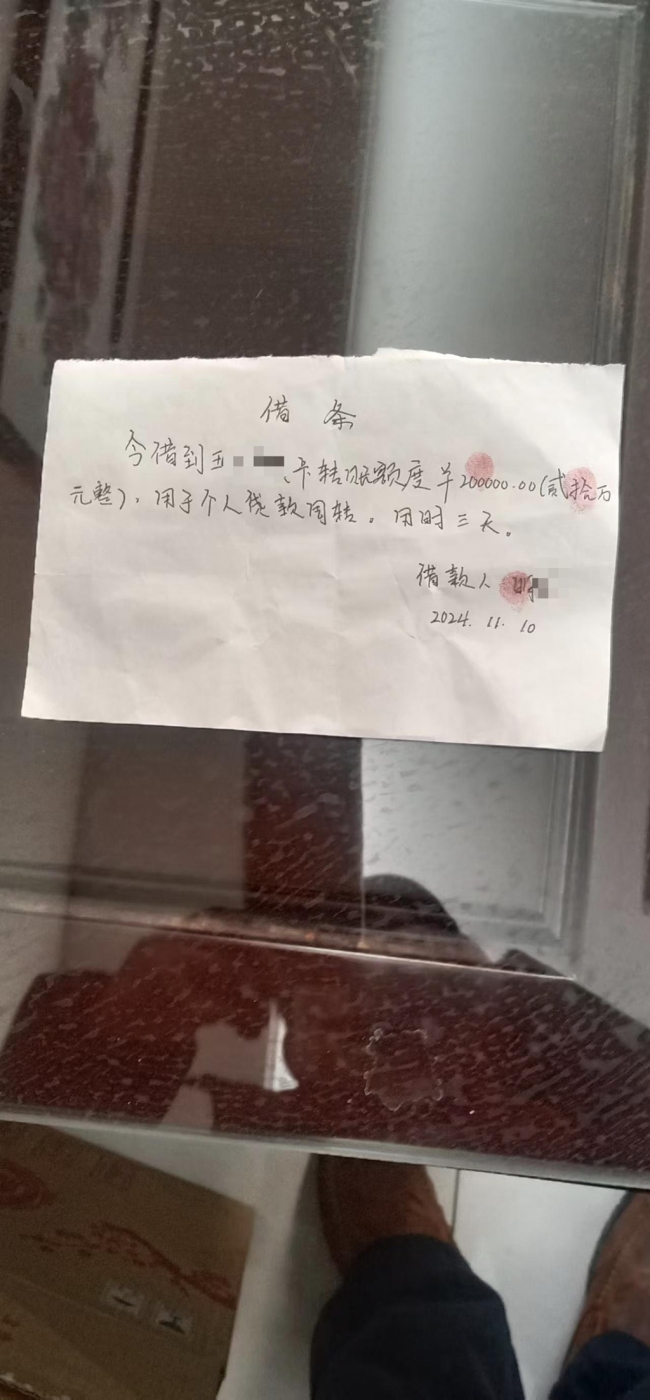 借 条
今借到王 卡转账额度￥200000.00(贰拾万
元整)，用于个人贷款周转。用时三天。
借款人
2024. 11. 10